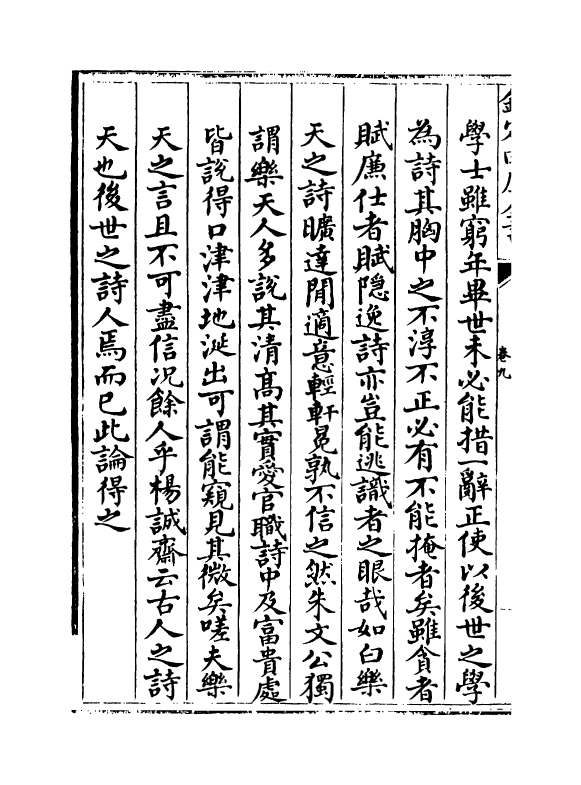 學士雖窮年畢世未必能措一辭正使以後世之學
為詩其胸中之不淳不正必有不能掩者矣雖貪者
賦廉仕者賦隐逸詩亦豈能逃識者之眼哉如白樂
天之詩曠達閒適意輕軒冕孰不信之然朱文公獨
謂樂天人多說其清髙其實愛官職詩中及富貴處
皆說得口津津地涎出可謂能窺見其微矣嗟夫樂
天之言且不可盡信况餘人乎楊誠齋云古人之詩
天也後世之詩人焉而已此論得之
卷九